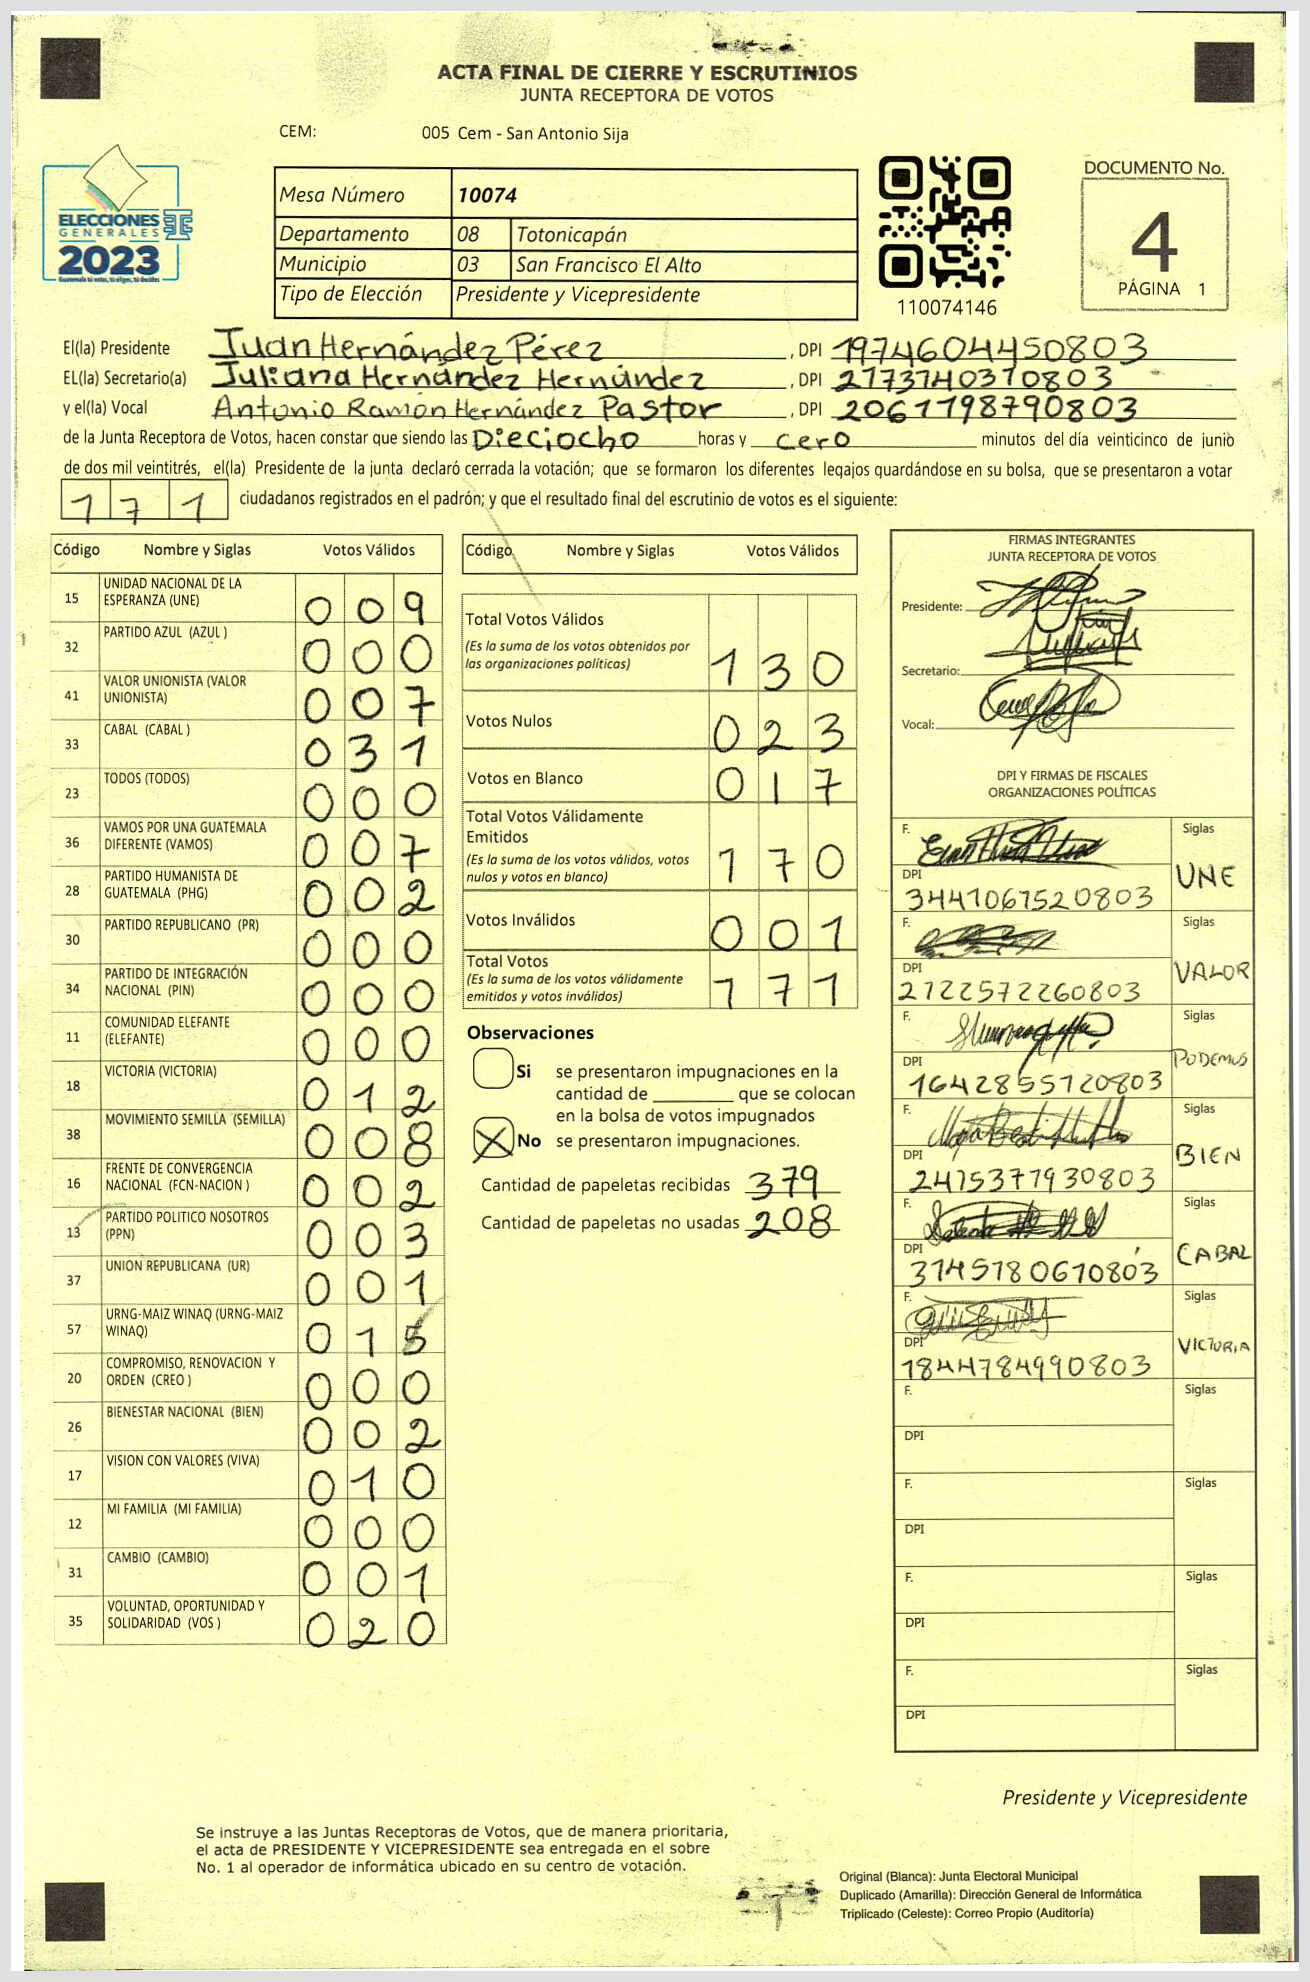 ACTA FINAL DE CIERRE Y ESCRUTINIOS
JUNTA RECEPTORA DE VOTOS
CEM: 005 Cem - San Antonio Sija
ELECCIONES
GENERALES
2023
Mesa Número 10074
Departamento 08 Totonicapán
Municipio 03 San Francisco El Alto
Tipo de Elección Presidente y Vicepresidente
110074146
DOCUMENTO No.
4
PÁGINA 1
El(la) Presidente Juan Hernández Pérez , DPI 1974604450803
EL(la) Secretario(a) Juliana Hernández Hernández , DPI 2773740370803
y el(la) Vocal Antonio Ramón Hernández Pastor , DPI 2061798790803
de la Junta Receptora de Votos, hacen constar que siendo las Dieciocho horas y cero minutos del día veinticinco de junio
de dos mil veintitrés, el(la) Presidente de la junta declaró cerrada la votación; que se formaron los diferentes legajos guardándose en su bolsa, que se presentaron a votar
171 ciudadanos registrados en el padrón; y que el resultado final del escrutinio de votos es el siguiente:
Código Nombre y Siglas Votos Válidos
15 UNIDAD NACIONAL DE LA ESPERANZA (UNE) 009
32 PARTIDO AZUL (AZUL ) 000
41 VALOR UNIONISTA (VALOR UNIONISTA) 007
33 CABAL (CABAL ) 031
23 TODOS (TODOS) 000
36 VAMOS POR UNA GUATEMALA DIFERENTE (VAMOS) 007
28 PARTIDO HUMANISTA DE GUATEMALA (PHG) 002
30 PARTIDO REPUBLICANO (PR) 000
34 PARTIDO DE INTEGRACIÓN NACIONAL (PIN) 000
11 COMUNIDAD ELEFANTE (ELEFANTE) 000
18 VICTORIA (VICTORIA) 012
38 MOVIMIENTO SEMILLA (SEMILLA) 008
16 FRENTE DE CONVERGENCIA NACIONAL (FCN-NACION ) 002
13 PARTIDO POLITICO NOSOTROS (PPN) 003
37 UNION REPUBLICANA (UR) 001
57 URNG-MAIZ WINAQ (URNG-MAIZ WINAQ) 015
20 COMPROMISO, RENOVACION Y ORDEN (CREO ) 000
26 BIENESTAR NACIONAL (BIEN) 002
17 VISION CON VALORES (VIVA) 010
12 MI FAMILIA (MI FAMILIA) 000
31 CAMBIO (CAMBIO) 001
35 VOLUNTAD, OPORTUNIDAD Y SOLIDARIDAD (VOS ) 020
Código Nombre y Siglas Votos Válidos
Total Votos Válidos
(Es la suma de los votos obtenidos por
las organizaciones políticas) 130
Votos Nulos 023
Votos en Blanco 017
Total Votos Válidamente
Emitidos
(Es la suma de los votos válidos, votos
nulos y votos en blanco) 170
Votos Inválidos 001
Total Votos
(Es la suma de los votos válidamente
emitidos y votos inválidos) 171
Observaciones
Si se presentaron impugnaciones en la
cantidad de ________ que se colocan
en la bolsa de votos impugnados
No se presentaron impugnaciones.
Cantidad de papeletas recibidas 379
Cantidad de papeletas no usadas 208
FIRMAS INTEGRANTES
JUNTA RECEPTORA DE VOTOS
Presidente:
Secretario:
Vocal:
DPI Y FIRMAS DE FISCALES
ORGANIZACIONES POLÍTICAS
F. Siglas
DPI 3441067520803 UNE
F. Siglas
DPI 2722572260803 VALOR
F. Siglas
DPI 1642855720803 PODEMOS
F. Siglas
DPI 2475377930803 BIEN
F. Siglas
DPI 3745780670803 CABAL
F. Siglas
DPI 1844784990803 VICTORIA
F. Siglas
DPI
F. Siglas
DPI
F. Siglas
DPI
F. Siglas
DPI
Presidente y Vicepresidente
Se instruye a las Juntas Receptoras de Votos, que de manera prioritaria,
el acta de PRESIDENTE Y VICEPRESIDENTE sea entregada en el sobre
No. 1 al operador de informática ubicado en su centro de votación.
Original (Blanca): Junta Electoral Municipal
Duplicado (Amarilla): Dirección General de Informática
Triplicado (Celeste): Correo Propio (Auditoría)